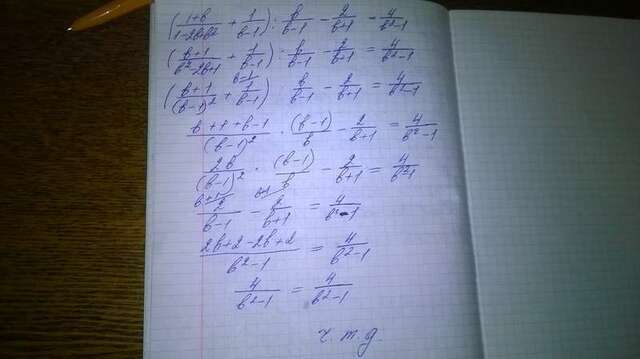 ((1+b)/(1-2b+b²) + 1/(b-1)) : b/(b-1) - 2/(b+1) = 4/(b²-1)
((b+1)/(b²-2b+1) + 1/(b-1)) : b/(b-1) - 2/(b+1) = 4/(b²-1)
((b+1)/(b-1)² + 1/(b-1)) : b/(b-1) - 2/(b+1) = 4/(b²-1)
(b+1+b-1)/(b-1)² · (b-1)/b - 2/(b+1) = 4/(b²-1)
2b/(b-1)² · (b-1)/b - 2/(b+1) = 4/(b²-1)
2/(b-1) - 2/(b+1) = 4/(b²-1)
(2b+2-2b+2)/(b²-1) = 4/(b²-1)
4/(b²-1) = 4/(b²-1)
ч.т.д.